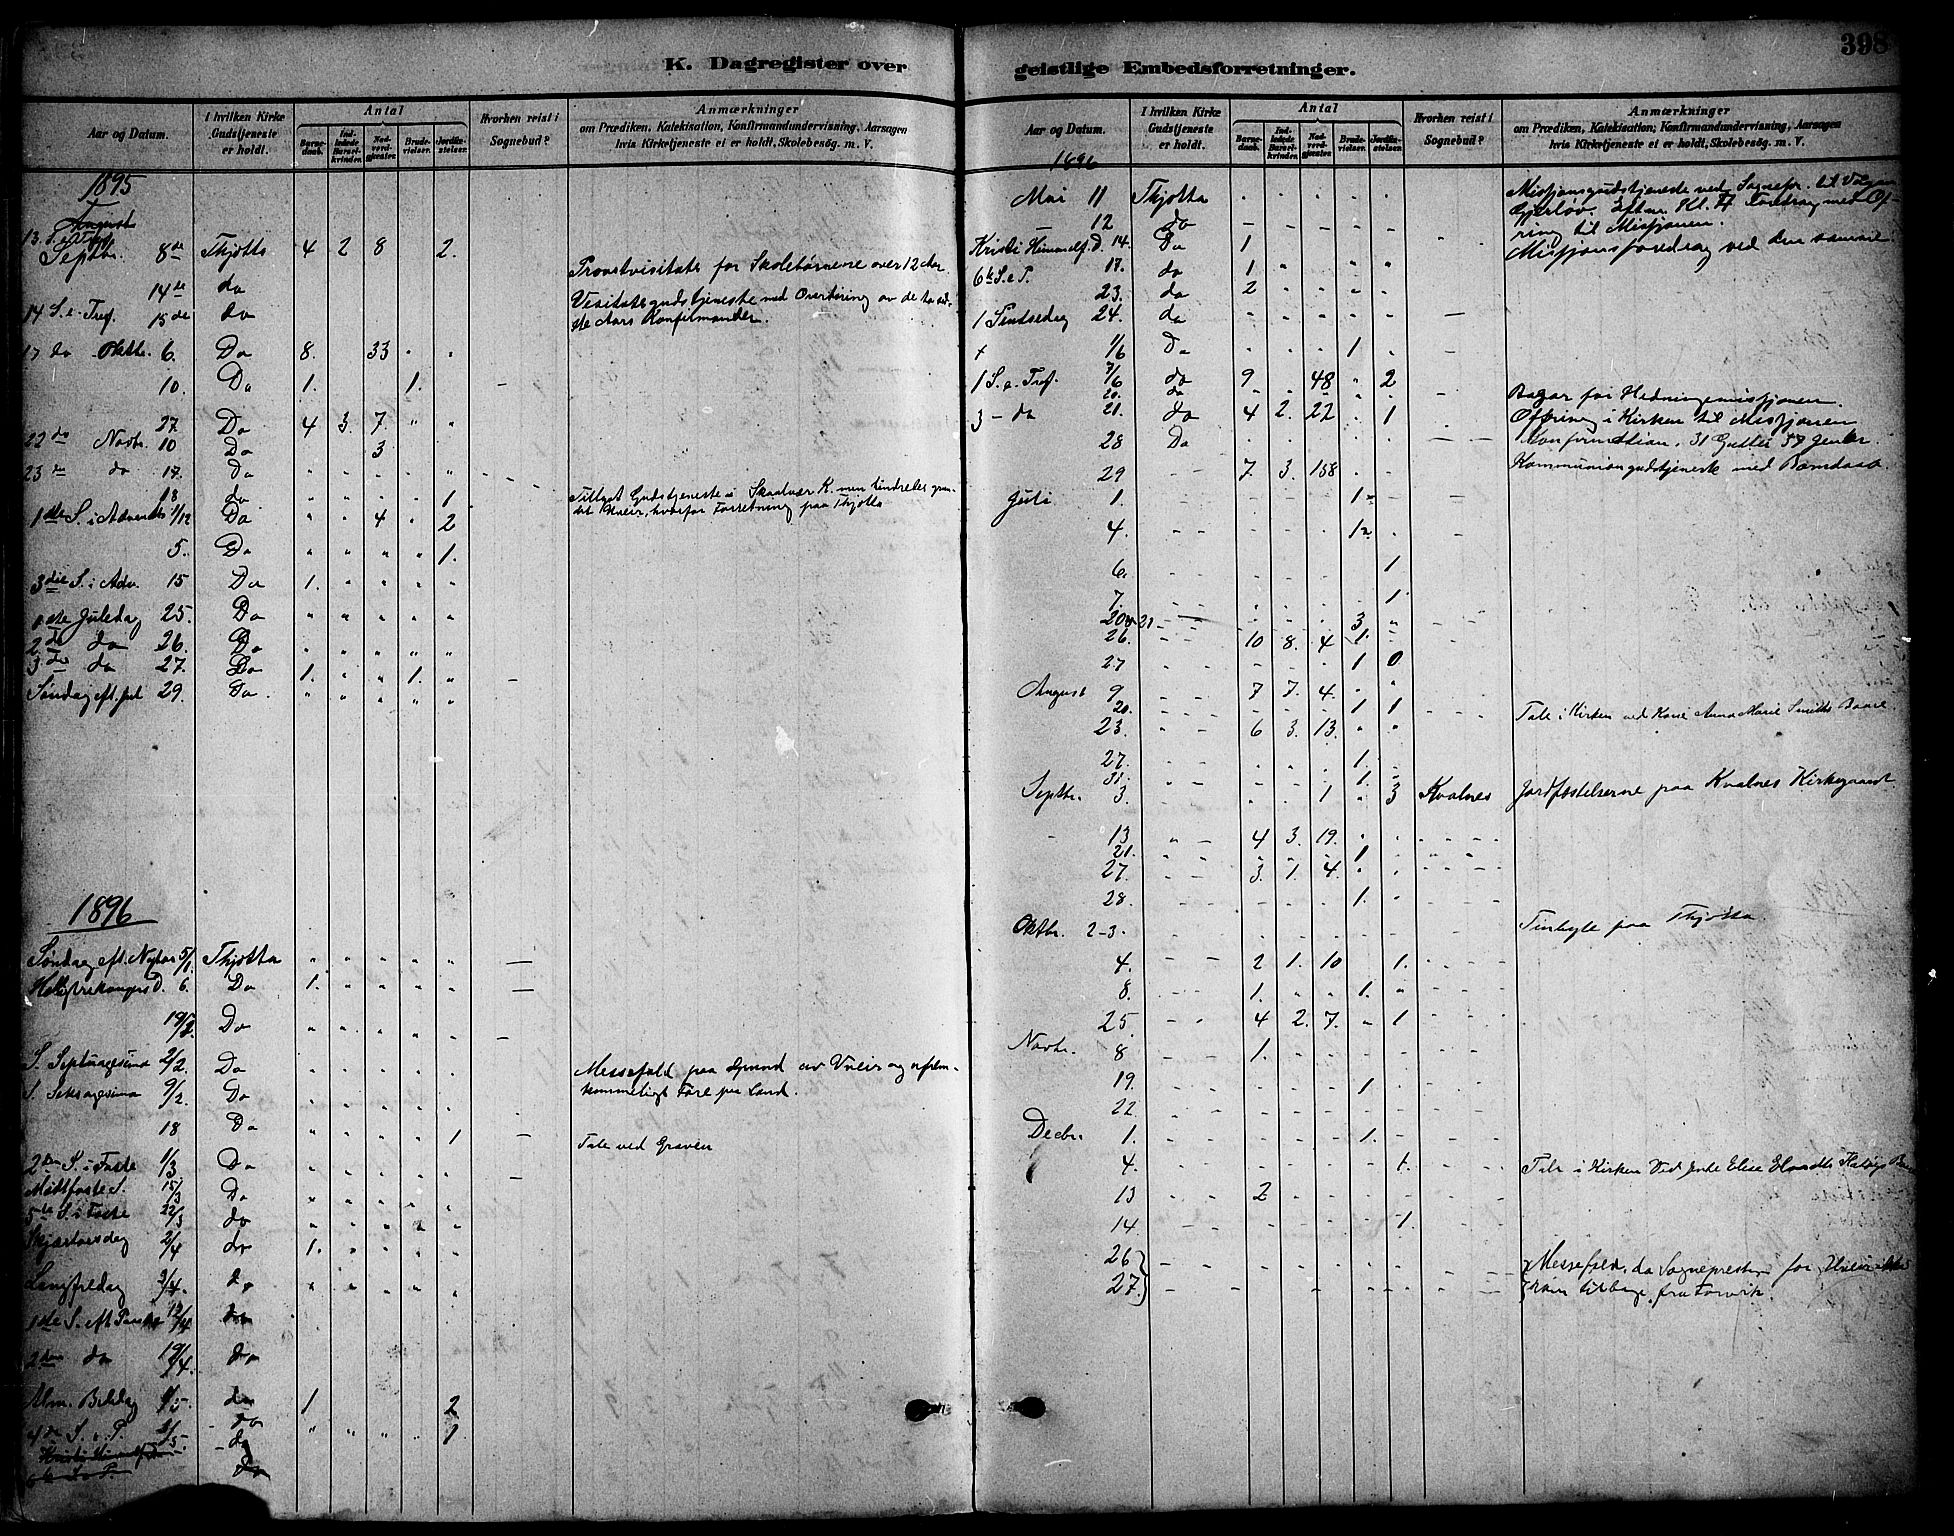 398
K. Dagregister over
geistlige Embedsforretninger.
Aar og Datum.
I hvilken Kirke Gudstjeneste er holdt.
Antal
Barnedaab.
Indledede Barselkvinder.
Nadverdgjester.
Brudevielser.
Jordfæstelser.
Hvorhen reist i Sognebud?
Anmærkninger
om Prædiken, Katekisation, Konfirmandundervisning, Aarsagen
hvis Kirketjeneste ei er holdt, Skolebesøg. m. V.
1895
August
Septbr. 8de Thjøtta 4 2 8 2.
14de do Provstvisitats for Skolebørnene over 12 Aar
14 S. e. Tref. 15de do Visitatsgudstjeneste med Overhøring av de to sid-
ste Aars Konfirmander.
17 do Oktbr. 6. Do 8. 33 " "
10. Do 1. 1. -
27. Do 4 3. 7 " "
22 do Novbr. 10 Do 3
23 do do 17. Do " " " " "
18. do " " " " 1. Tillyst Gudstjeneste i Skaalvær K. men hindredes grun-
det Uveir, hvorfor Forretning paa Thjøtta
1ste S. i Advent 1/12 Do " " 4 " 2
5. Do " " " " 1.
3die S. i Adv. 15 Do 1. " " " "
1ste Juledag 25. Do " " " " "
2de do 26. Do " " " " "
3die do 27. Do 1. " " 1. " -
Søndag eft. Jul 29. Do " " " " "
1896
Søndag eft. Nytaar 5/1 Thjøtta " " " " " -
Helligtrekongers D. 6. Do 1. " " " " -
19/2 Do " " " " " -
S. Septuagesima 2/2. Do " " " " " Messefald paa Grund av Uveir og ufrem-
kommeligt Føre paa Land.
S. Seksagesima 9/2 Do " " " " "
18 Do " " " " 1 - Tale ved Graven
2den S. i Faste 1/3 Do " " " " " -
Midtfaste S. 15/3 Do " " " " "
5te S. i Faste 22/3 do " " " " "
Skjærtorsdag 2/4 do 1. " " " "
Langfredag 3/4. do " " " " "
1ste S. eft. Paaske 12/4 do
2den do 19/4 do
Alm. Bededag 1/5. do 1 2
4de S. e. P. 3/5. do " " " " 1
Kristi Himmelf. D.
6te S. e. P. do
Aar og Datum.
I hvilken Kirke Gudstjeneste er holdt.
Antal
Barnedaab.
Indledede Barselkvinder.
Nadverdgjester.
Brudevielser.
Jordfæstelser.
Hvorhen reist i Sognebud?
Anmærkninger
om Prædiken, Katekisation, Konfirmandundervisning, Aarsagen
hvis Kirketjeneste ei er holdt, Skolebesøg. m. V.
1896
Mai 11 Thjøtta . . . . . Missjonsgudstjeneste ved Sognepr. til
Gjerløv. Efterm. Kl. 7 Foredrag med Of-
ring til Missjonen.
- 12 do Missjonsforedrag ved den samme
Kristi Himmelf. D. 14. Do 1
6te S. e. P. 17. do 1 " " " "
23. do 2 " " " "
1 Pintsedag 24. do " " " " " -
+ 1/6 Do " " " 1 " -
1 S. e. Tref. 7/6 do 9 " 48 " 2
20. do Bazar for Hedningemissjonen.
3 - do 21. do 4 2. 22 . 1 Ofring i Kirken til Missjonen
28 Do . . . . . - Konfirmation. 31 Gutter 37 Jenter.
29 - 7 3. 158 . . Kommuniongudstjeneste med Barnedaab.
Juli 1. - - - - 1 - -
4. - - - - 1 - -
6. - - - - - 1
7. - - - - - 1.
20 & 21 - - - - 3 "
26. - 10 8. 4 1. -
27 - - - - 1 0
August 9 - 7 7. 4. . .
20. - - - - 1 1 - Tale i Kirken ved Anna Marie Smiths Baare
23. - 6 3. 13. " "
27. - - - - 1.
31. - - - - 1. -
Septbr. 3. . . 1 " 3 Kvalnes Jordfæstelserne paa Kvalnes Kirkegaard
13 " - 4 3. 19. . .
21. - - - - 1 -
27. - 3. 1. 4. " .
28. - - - - 1. -
Oktbr. 2-3. Tinhyle paa Thjøtta
4. - 2 1. 10 1. -
8. - 1. " " 1. "
25. - 4 2. 7. - 1
Novbr. 8 - 1. - - - -
19. - - - - 1 -
22. - - - - - -
Decbr. 1. - - - - 1. -
4. - - - - - 1. Tale i Kirken ved Elise
13 - 2 - - - -
14. - - - - - 1.
26
27. Messefald, da Sognepresten for Uveir ikke
kom tilbage fra Forvik.